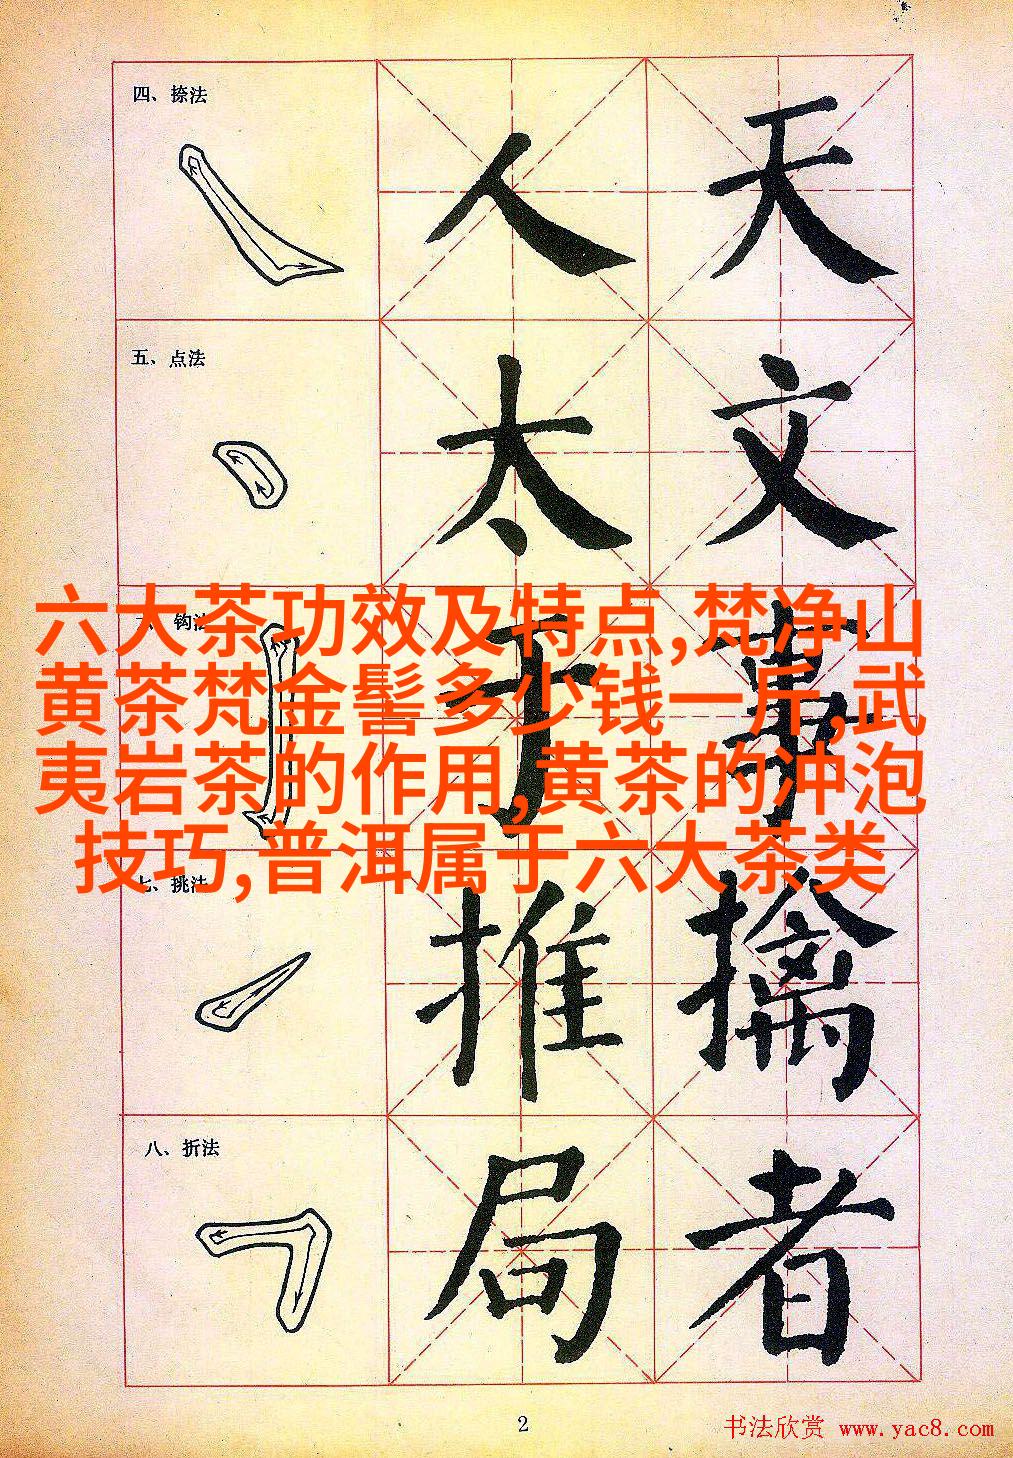 四、捺法
人 天
五、点法
太 文
六大茶功效及特点,梵净山
黄茶梵金髻多少钱一斤,武
夷岩茶的作用,黄茶的冲泡
技巧,普洱属于六大茶类
钩法
于 事
七、挑法
推 擒
八、折法
局 者
2
书法欣赏 www.yac8.com